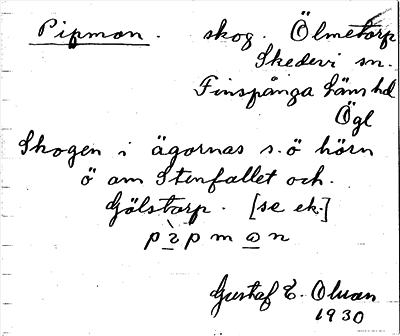 Pipmon. skog. Ölmetorp
Skedevi sn.
Finspånga läns hd
Ögl
Skogen i ägornas s.ö hörn
ö om Stenfallet och.
Gölstorp. [se ek.]
p m n
Gustaf E. Olsson
1930